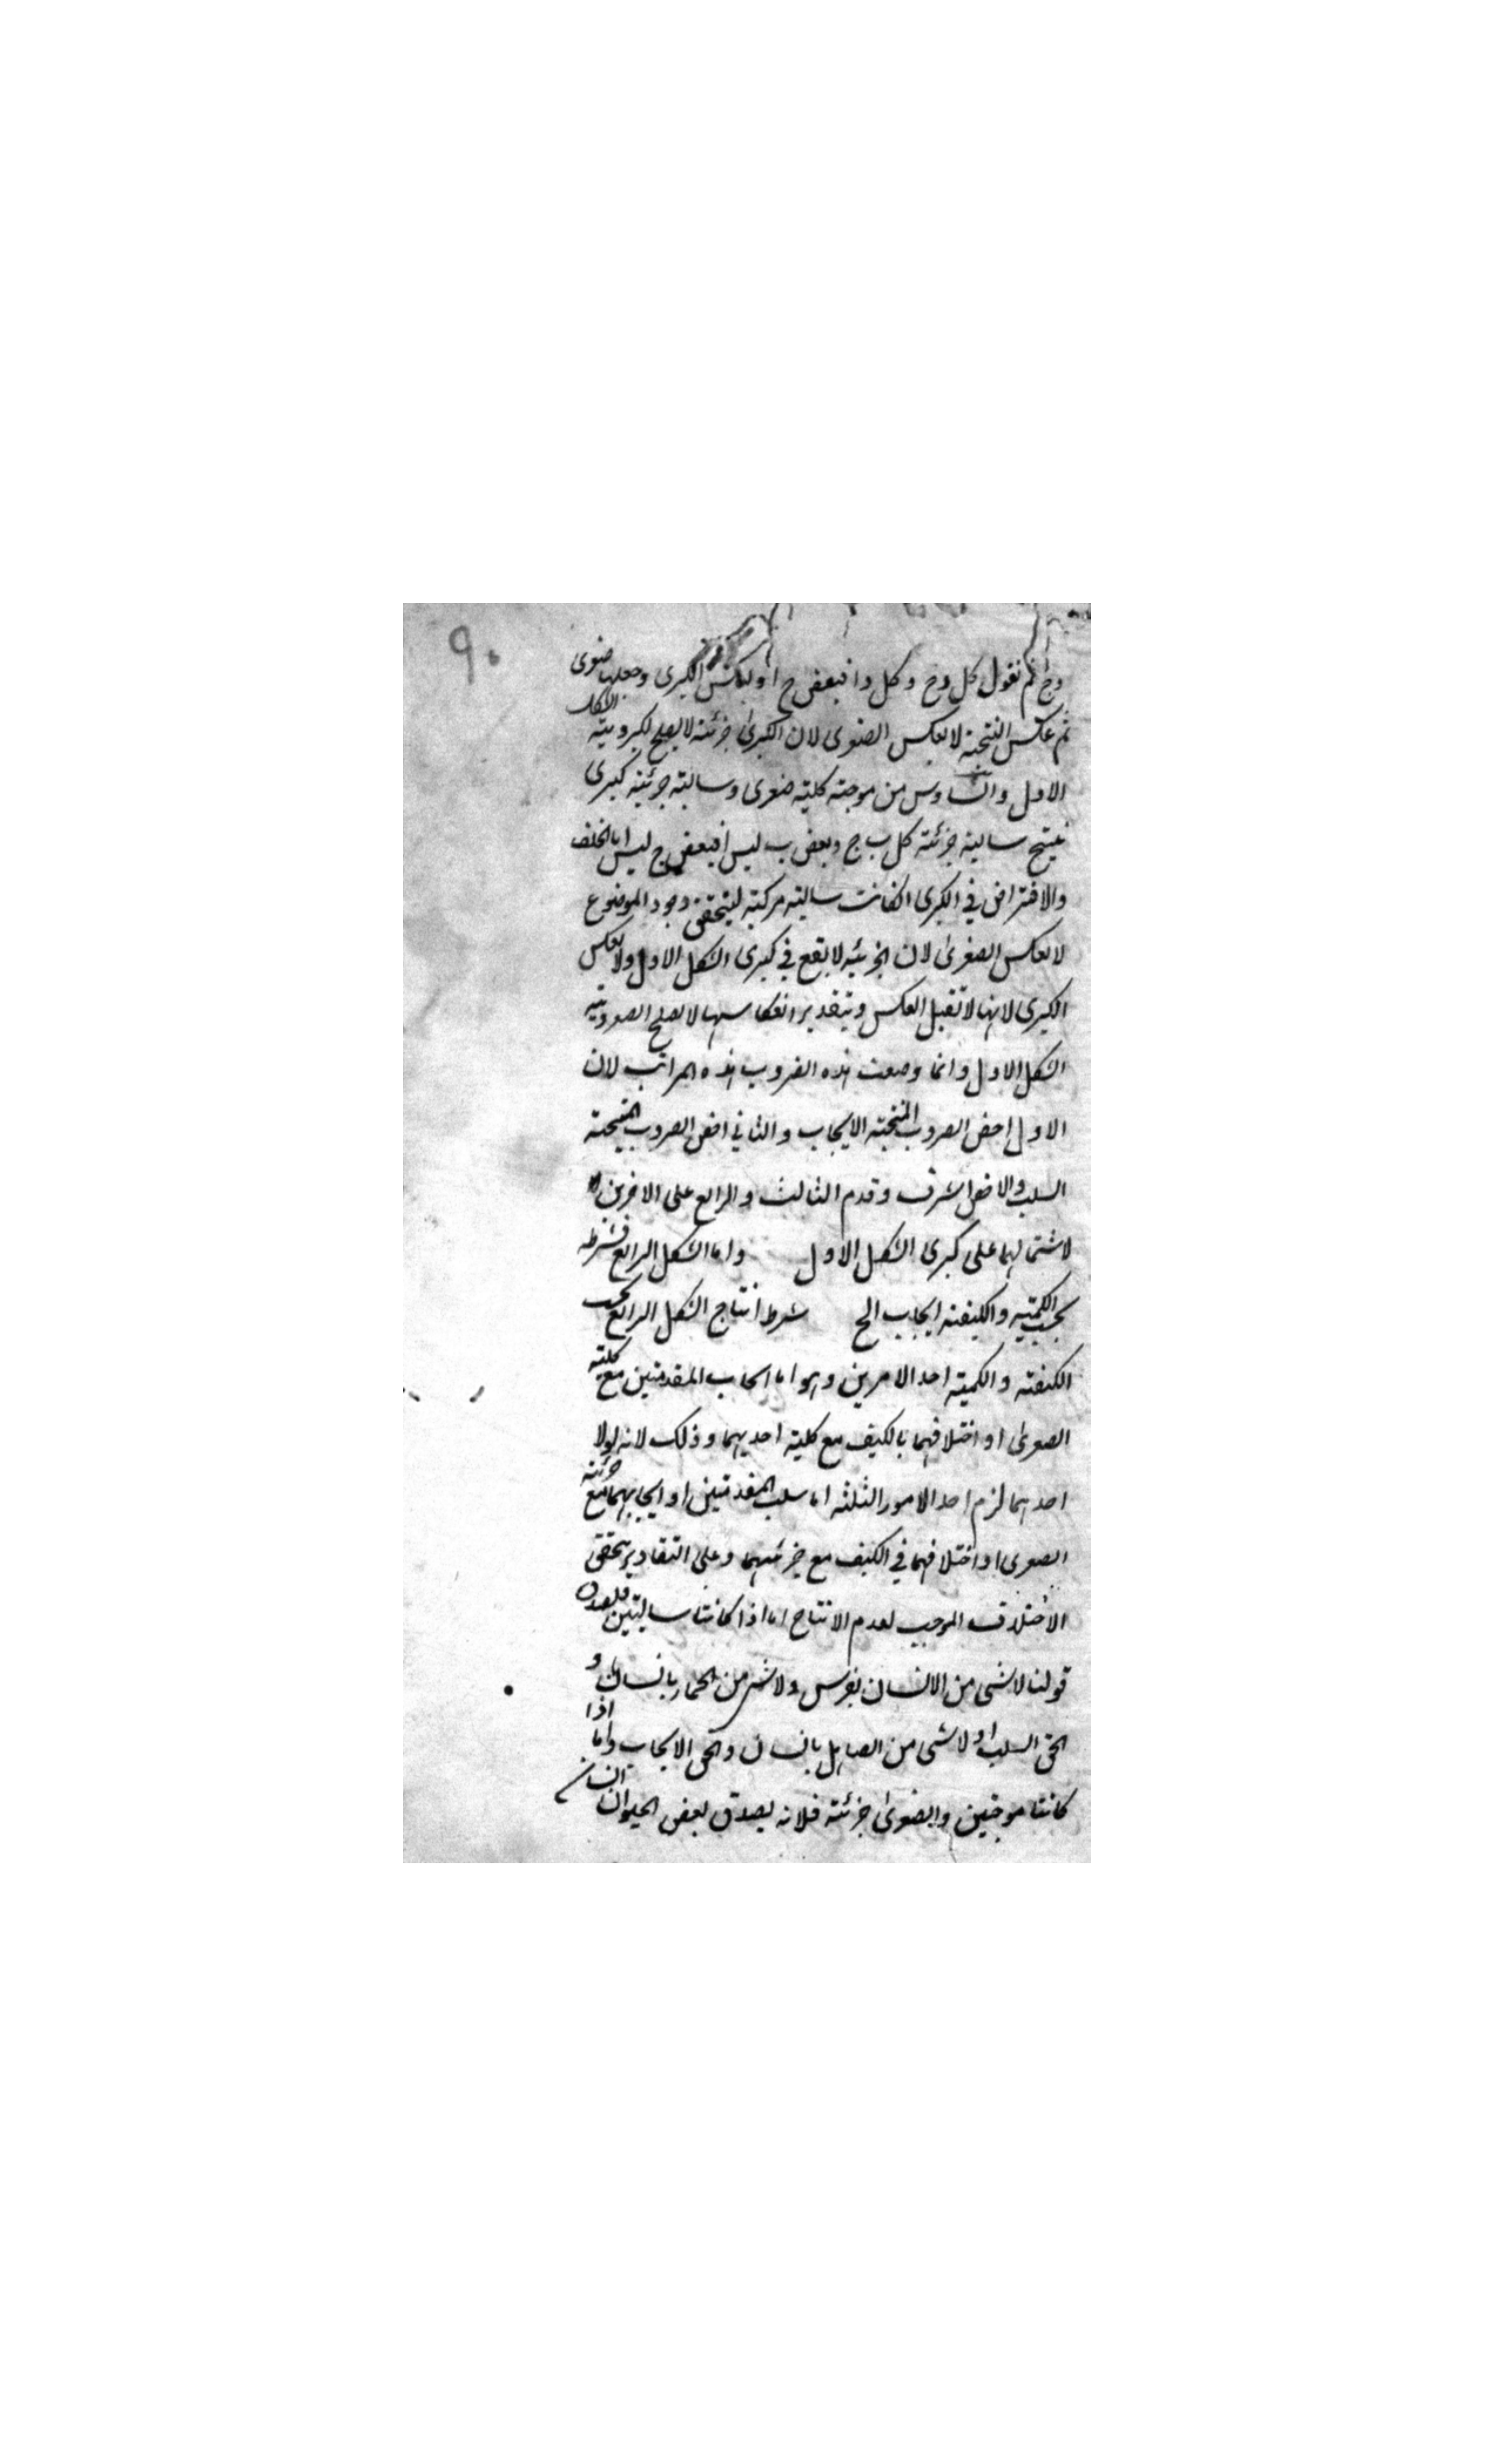 ٩٠
دج ثم نقول كل دج وكل دا فبعض ج ا وبعكس الكبرى وجعلها صغرى
ثم عكس النتيجة لا بعكس الصغرى لان الكبرى جزئية لا يصلح لكبروية الشكل
الاول والسادس من موجبة كلية صغرى وسالبة جزئية كبرى
ينتج سالبة جزئية كل ب ج وبعض ب ليس ا فبعض ج ليس ا بالخلف
والافتراض في الكبرى انكانت سالبة مركبة ليتحقق وجود الموضوع
لا بعكس الصغرى لان الجزئية لا يقع في كبرى الشكل الاول ولا بعكس
الكبرى لانها لا تقبل العكس وبتقدير انعكاسها لا يصلح لصغروية
الشكل الاول وانما وضعت هذه الضروب هذه المراتب لان
الاول اخص الضروب المنتجة الايجاب والثاني اخص الضروب المنتجة
السلب والاخص اشرف وقدم الثالث والرابع على الاخرين
لاشتمالهما على كبرى الشكل الاول واما الشكل الرابع فشرطه
بحسب الكمية والكيفية ايجاب الخ شرط انتاج الشكل الرابع بحسب
الكيفية والكمية احد الامرين وهو اما ايجاب المقدمتين مع كلية
الصغرى او اختلافهما بالكيف مع كلية احديهما وذلك لانه لولا
احدهما لزم احد الامور الثلثة اما سلب المقدمتين او ايجابهما مع جزئية
الصغرى او اختلافهما في الكيف مع جزئيتهما وعلى التقادير يتحقق
الاختلاف الموجب لعدم الانتاج اما اذا كانتا سالبتين فلصدق
قولنا لا شى من الانسان بفرس ولا شى من الحمار بانسان و
الحق السلب او لا شى من الصاهل بانسان والحق الايجاب واما اذا
كانتا موجبتين والصغرى جزئية فلانه يصدق بعض الحيوان انسان